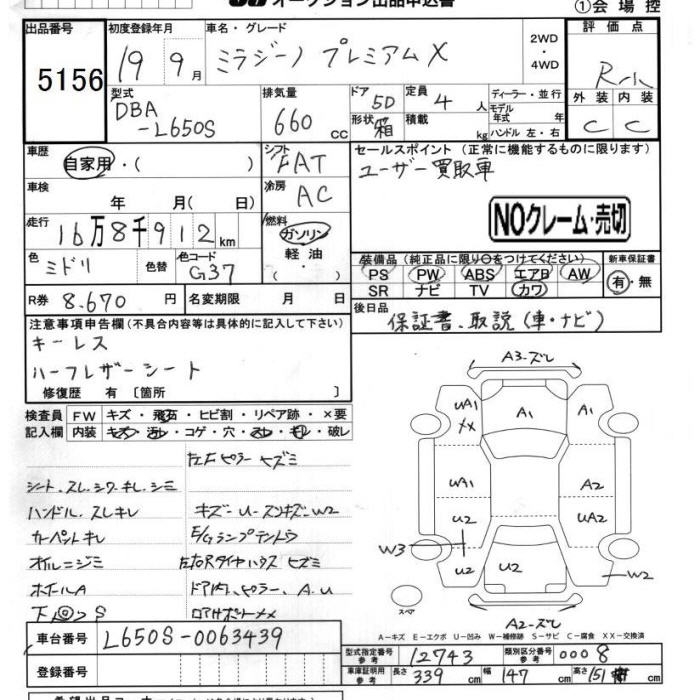 オークション出品申込書
①会場控
出品番号 5156
初度登録年月 19 9月
車名・グレード ミラジーノ プレミアムX
2WD・4WD
評価点 R小
外装 C 内装 C
型式 DBA-L650S
排気量 660 cc
ドア 5D
形状 箱
定員 4 人
積載 kg
ディーラー・並行
モデル年式 年式
ハンドル 左・右
車歴 自家用・( )
シフト FAT
セールスポイント (正常に機能するものに限ります)
ユーザー買取車
車検 年 月( 日)
冷房 AC
NOクレーム・売切
走行 16万8千912km
燃料 ガソリン 軽油 ・( )
色 ミドリ 色替
色コード G37
装備品 (純正品に限り○をつけてください)
PS PW ABS エアB AW
SR ナビ TV カワ
新車保証書 有・無
R券 8.670 円
名変期限 月 日
後日品 保証書、取説(車・ナビ)
注意事項申告欄(不具合内容等は具体的に記入して下さい)
キーレス
ハーフレザーシート
修復歴 有 〔箇所 〕
検査員記入欄
FW キズ・飛石・ヒビ割・リペア跡・×要
内装 キズ・汚レ・コゲ・穴・スレ・キレ・破レ
左Fピラー ヒズミ
シート、スレ、シワ、キレ、シミ
ハンドル、スレキレ
キズー U-スンキズ-W2
カーペットキレ
E/Gランプテントウ
オイルニジミ
左右Rタイヤハウス ヒズミ
ホイールA
ドア内、ピラー、A.U
下回りS
A3-ズレ
UA1
××
A1
A1
UA1
A2
U2
UA2
W3
U2
U2
W2
スペア
A2-ズレ
A-キズ E-エクボ U-凹み W-補修跡 S-サビ C-腐食 XX-交換済
車台番号 L650S-0063439
登録番号
型式指定番号 参考 12743
類別区分番号 参考 0008
車庫証明用 参考 長さ 339 cm 幅 147 cm 高さ 151 cm